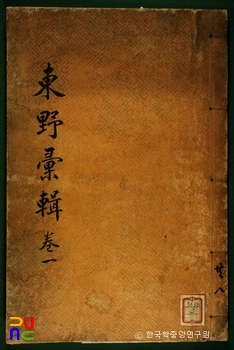 東野彙輯 卷一
共八
© 한국학중앙연구원